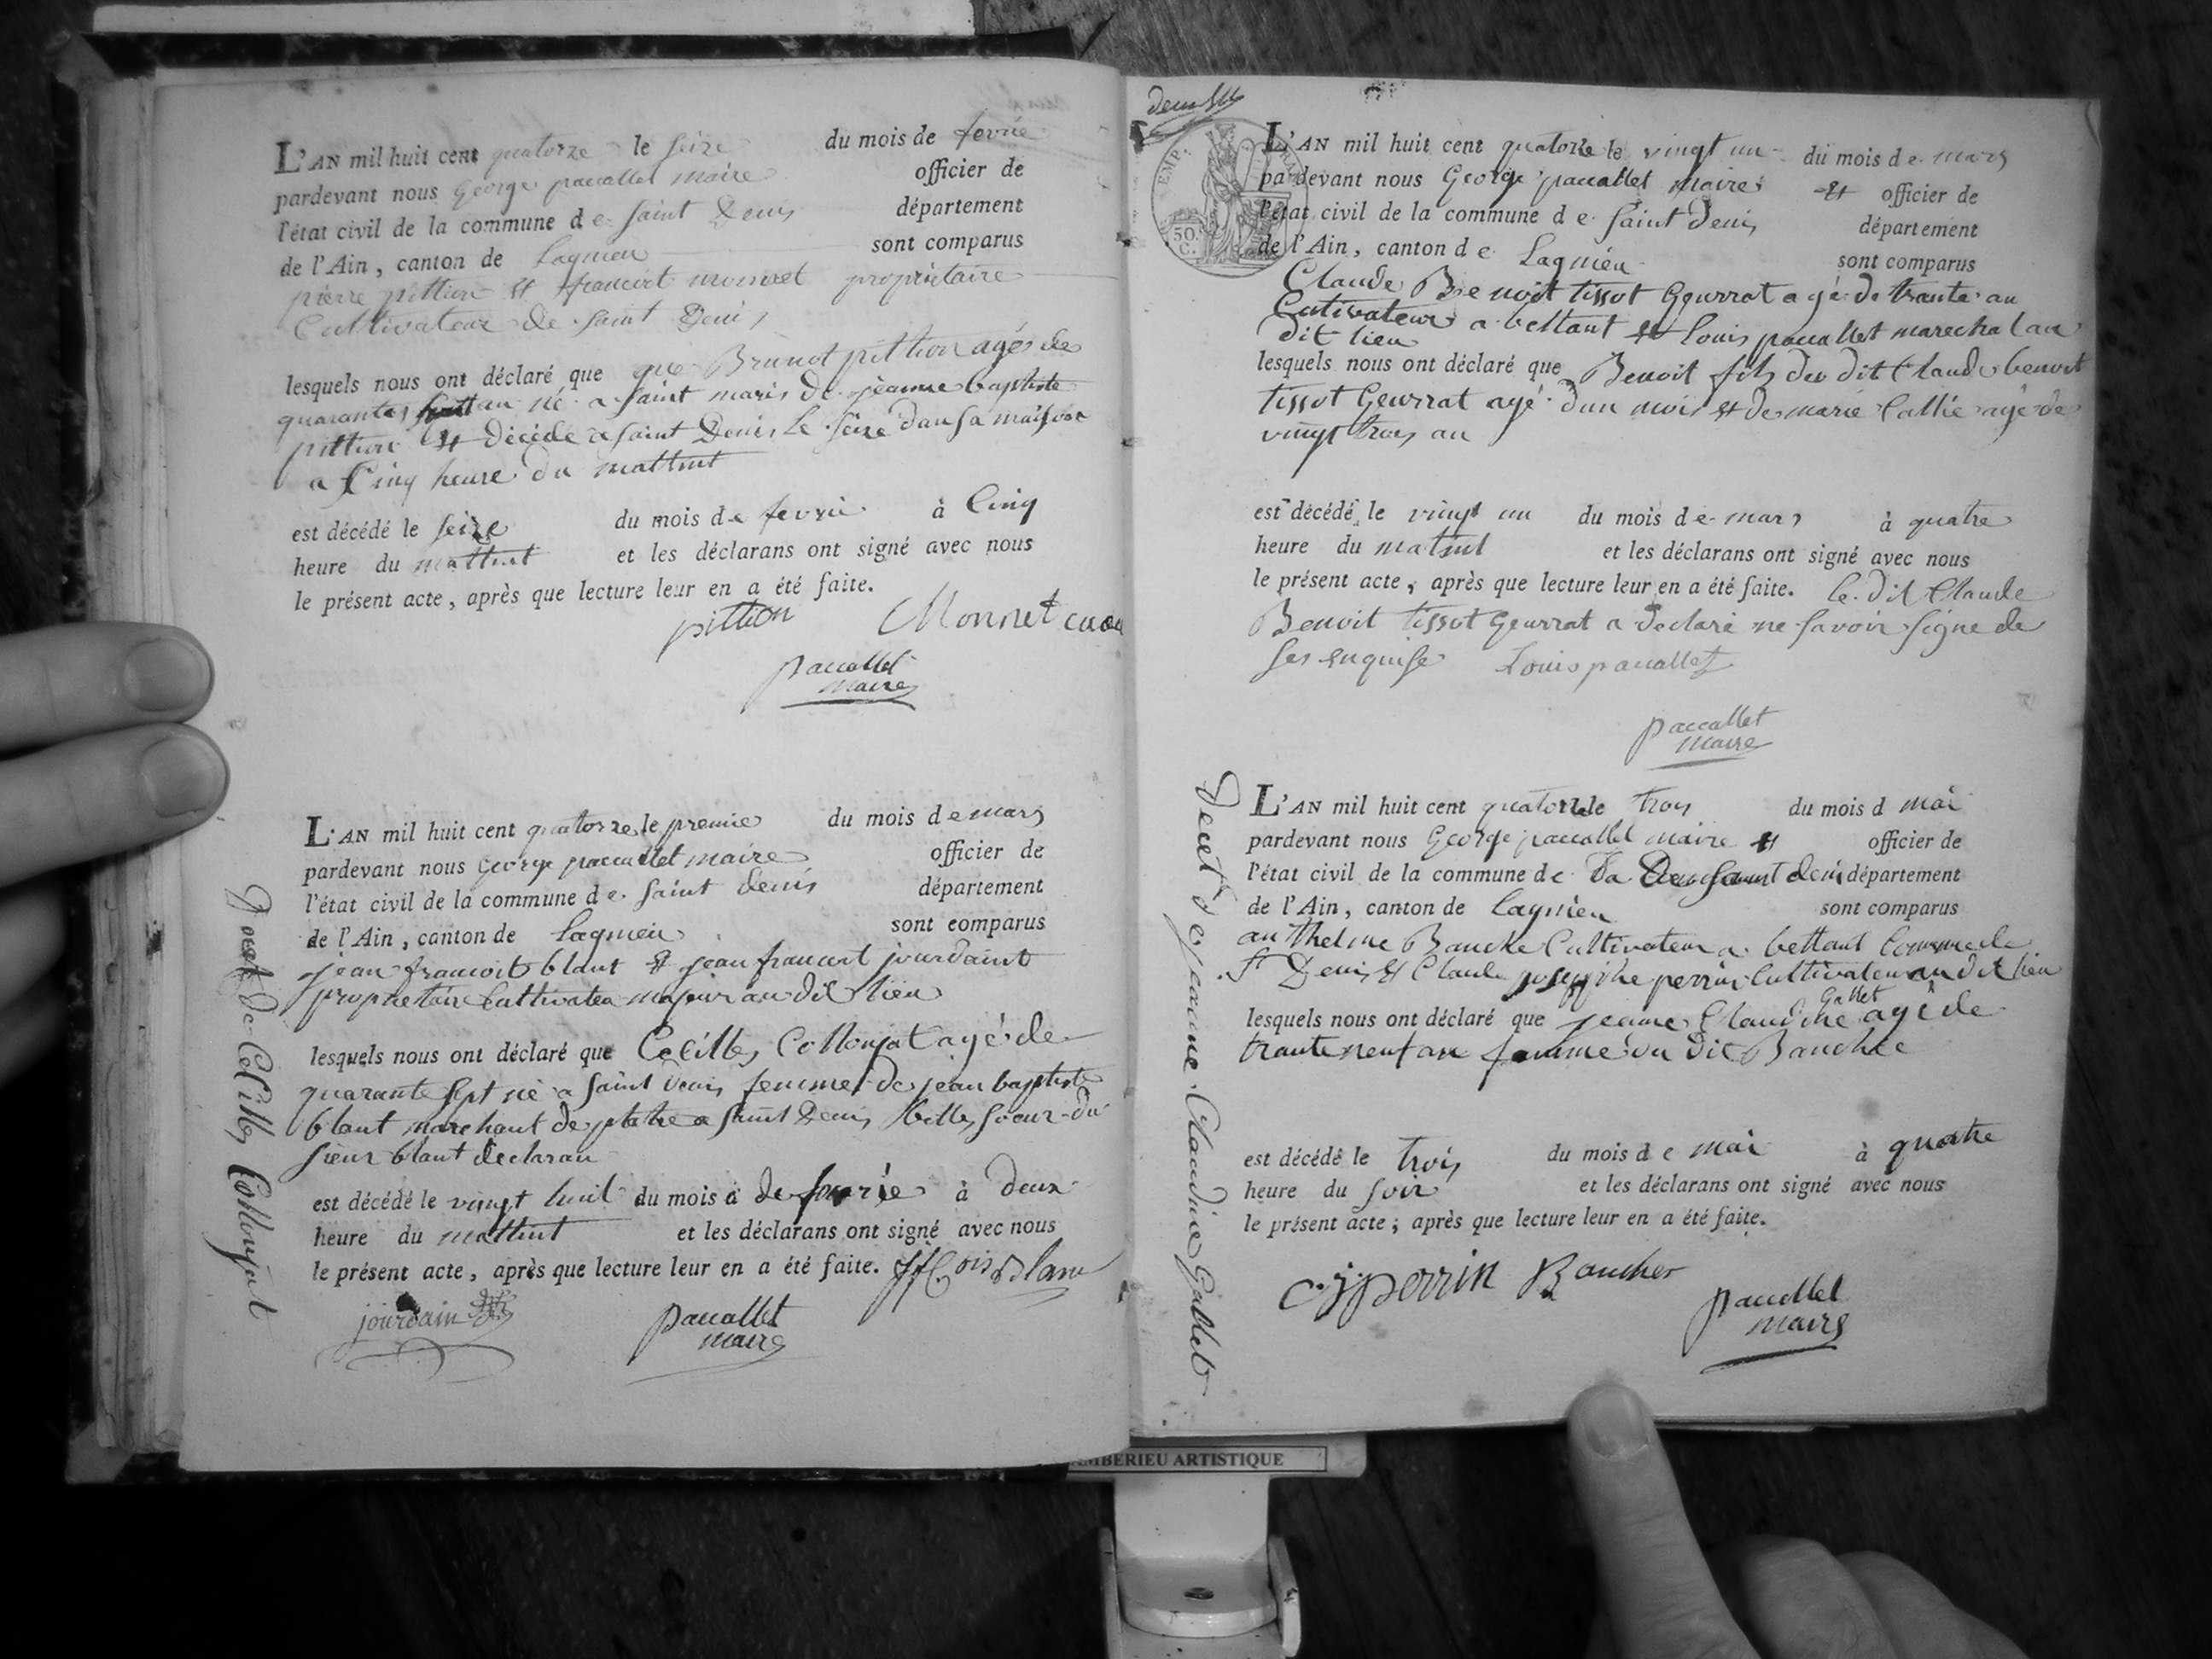 L'AN mil huit cent quatorze le seize du mois de fevrie
pardevant nous George paccallet maire officier de
l'état civil de la commune de Saint Denis département
de l'Ain, canton de Lagnieu sont comparus
pierre pittion et francoit monnet propriétaire
Cultivateur de Saint Denis
lesquels nous ont déclaré que que Brunot pittion agé de
quarante an né a Saint maris de jeanne baptiste
pittion et décéde a Saint Denis le seize dans sa maison
a Cinq heure du mattint
est décédé le seize du mois de fevrie à Cinq
heure du mattint et les déclarans ont signé avec nous
le présent acte, après que lecture leur en a été faite.
pittion Monnet
paccallet
maire
L'AN mil huit cent quatorze le premie du mois de mars
pardevant nous George paccallet maire officier de
l'état civil de la commune de Saint Denis département
de l'Ain, canton de Lagnieu sont comparus
jean francoit blant et jean francoit jourdaint
proprietaire Cultivateu majeur au dit lieu
lesquels nous ont déclaré que Cecilles Collonjat agé de
quarante sept né a Saint Denis femme de jean baptiste
blant marchant de platre a Saint Denis belles soeur du
sieur blant declaran
est décédé le vingt huit du mois d de fevrie à deux
heure du mattint et les déclarans ont signé avec nous
le présent acte, après que lecture leur en a été faite. Blanc
jourdain
paccallet
maire
de Cecilles Collonjat
L'AN mil huit cent quatorze le vingt un du mois de mars
pardevant nous George paccallet maire et officier de
l'état civil de la commune de Saint Denis département
de l'Ain, canton de Lagnieu sont comparus
EMP.
50
C.
Claude Benoit tissot Geurrat agé de trante an
Cutivateur a bettant et Louis paccallet marechal au
dit lieu
lesquels nous ont déclaré que Benoit fils du dit Claude benoit
tissot Geurrat agé d'un mois et de marie Callie agé de
vingt trois an
est décédé le vingt un du mois de mars à quatre
heure du matint et les déclarans ont signé avec nous
le présent acte, après que lecture leur en a été faite. le dit Claude
Benoit tissot Geurrat a declaré ne savoir signe de
ses enquise Louis paccallet
paccallet
maire
L'AN mil huit cent quatorze le trois du mois d mai
pardevant nous George paccallet maire et officier de
l'état civil de la commune de Saint denis département
de l'Ain, canton de Lagnieu sont comparus
an thelme Bauche Cultivateur a bettant Commede
St Denis et Claude josepphe perrin Cultivateur au dit lieu
Gallet
lesquels nous ont déclaré que jeanne Claudine agé de
trante neuf an famme du dit Bauche
est décédé le trois du mois de mai à quatre
heure du soir et les déclarans ont signé avec nous
le présent acte; après que lecture leur en a été faite.
C. j perrin Baucher
paccallet
maire
de jeanne Claudine Gallet
AMBERIEU ARTISTIQUE